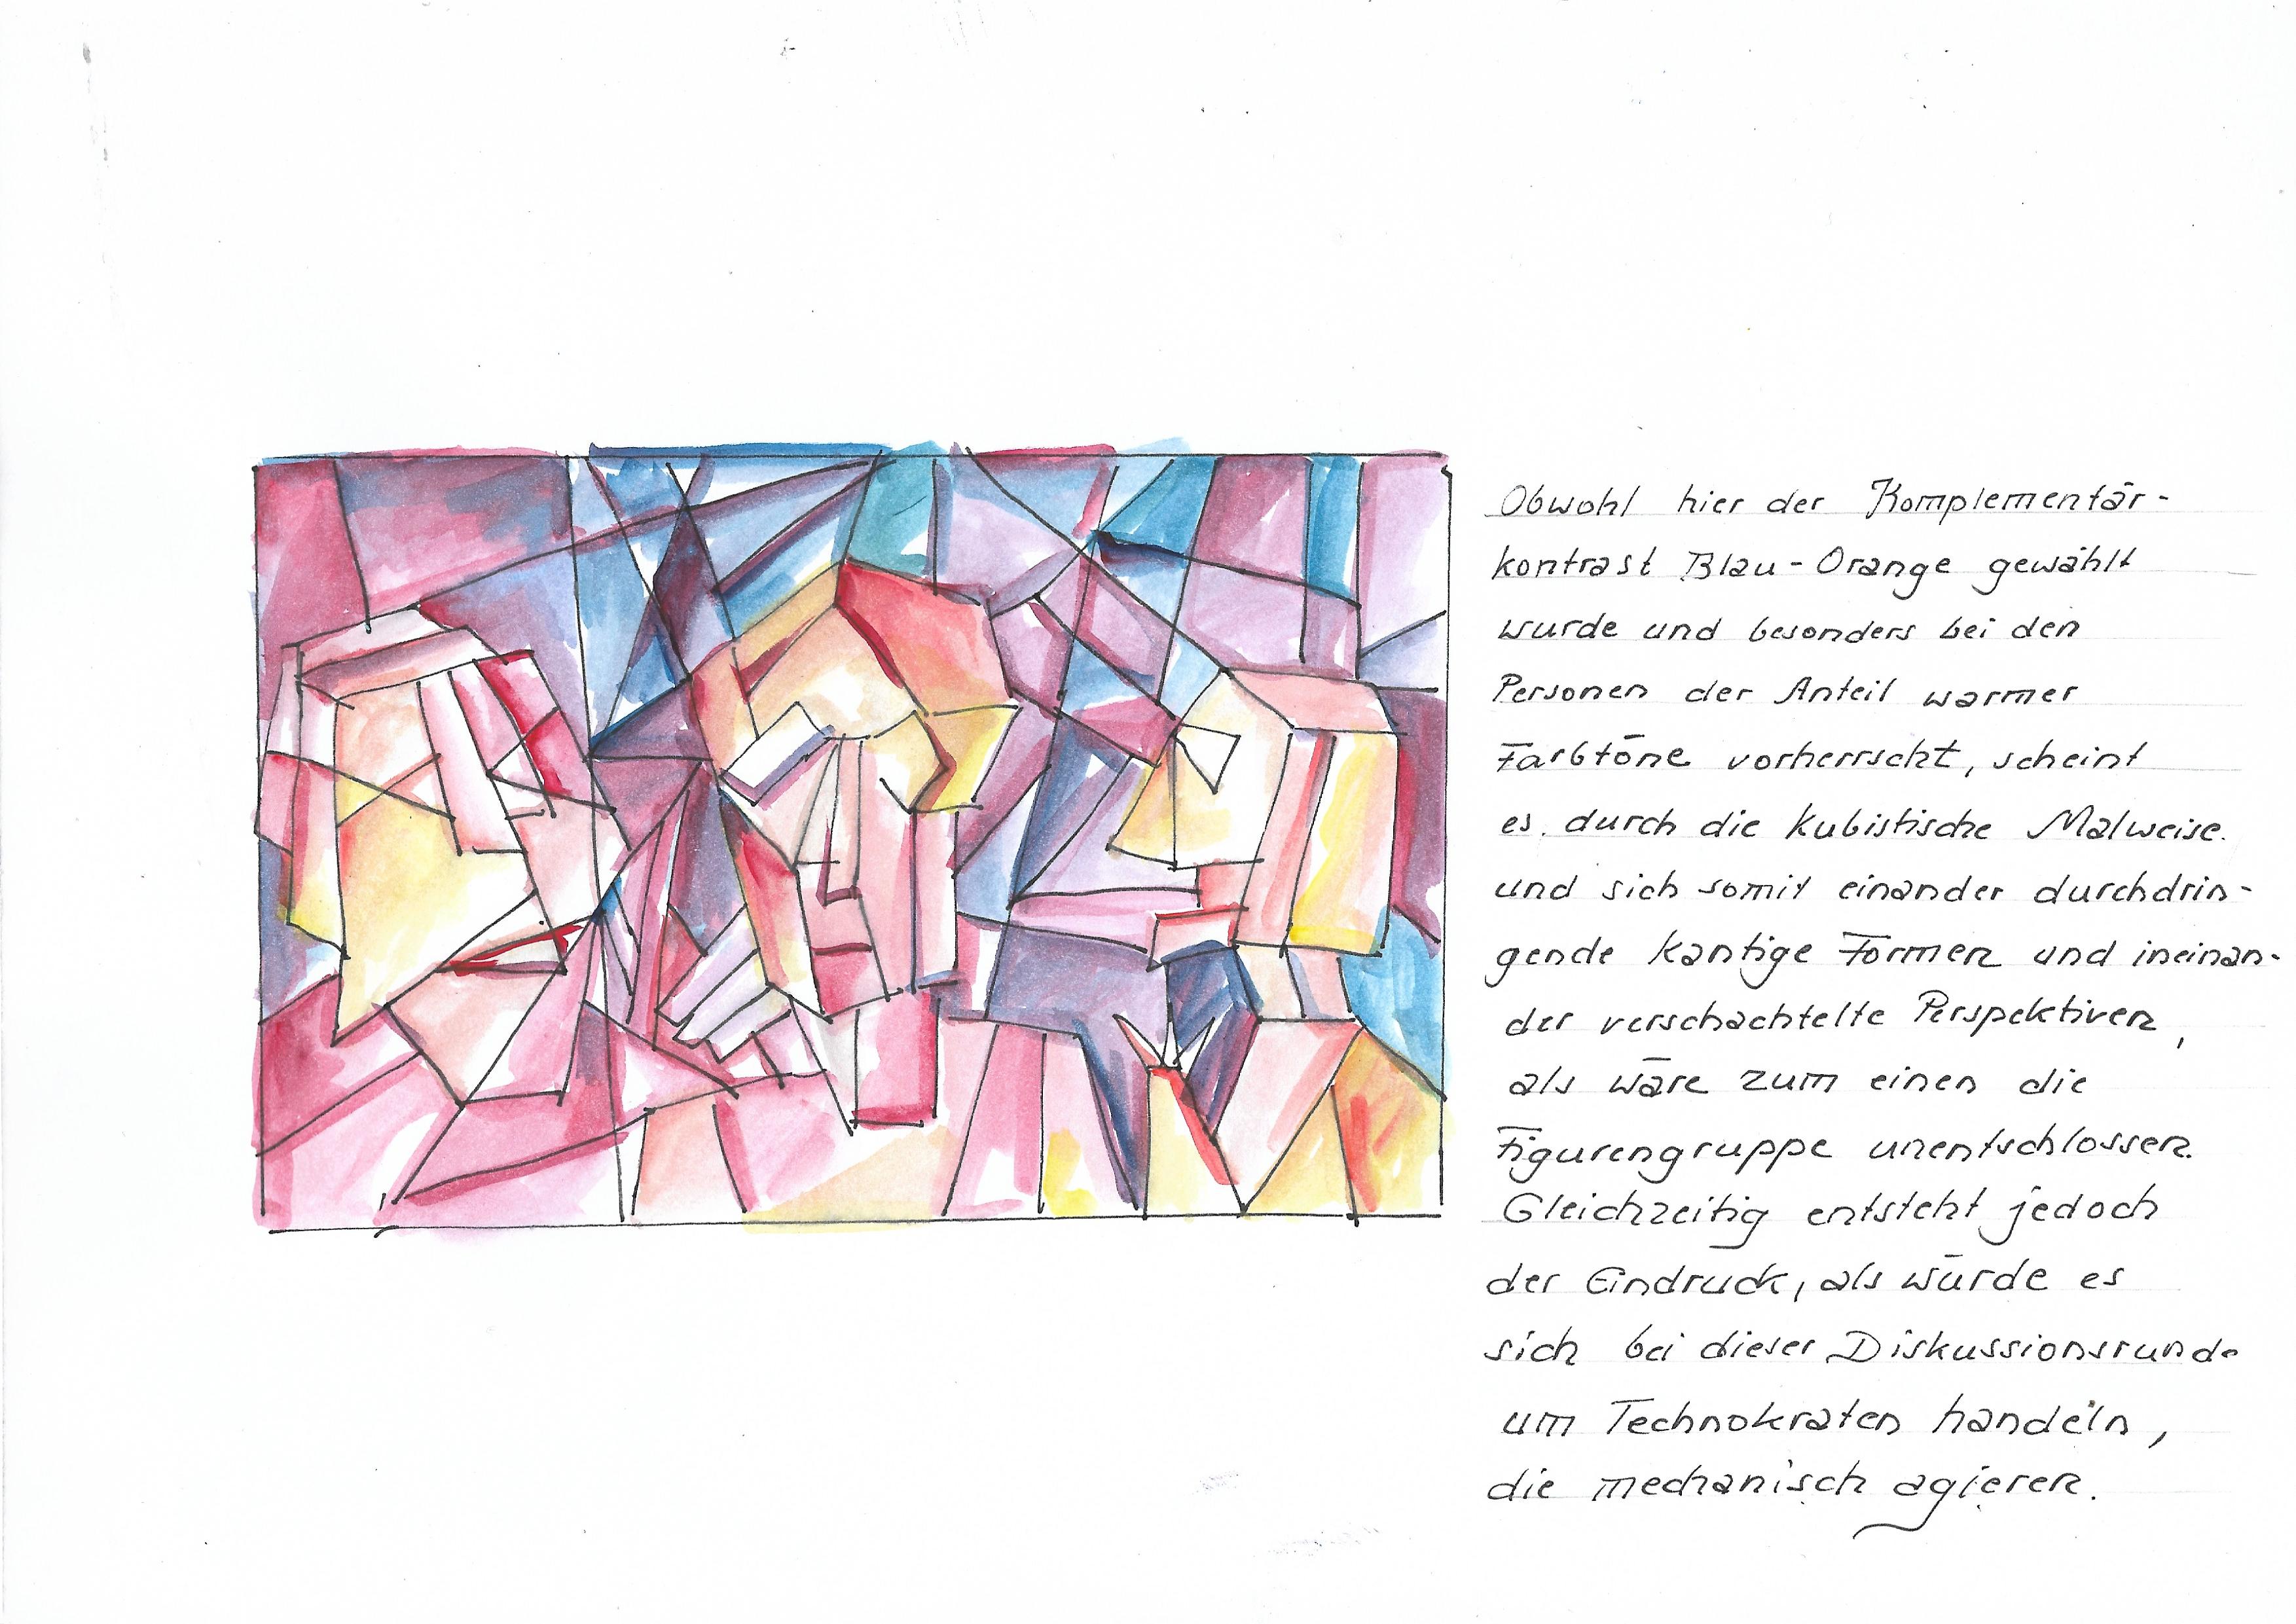 Obwohl hier der Komplementär-
kontrast Blau-Orange gewählt
wurde und besonders bei den
Personen der Anteil warmer
Farbtöne vorherrscht, scheint
es durch die kubistische Malweise
und sich somit einander durchdrin-
gende kantige Formen und ineinan-
der verschachtelte Perspektiven,
als wäre zum einen die
Figurengruppe unentschlossen.
Gleichzeitig entsteht jedoch
der Eindruck, als würde es
sich bei dieser Diskussionsrunde
um Technokraten handeln,
die mechanisch agieren.